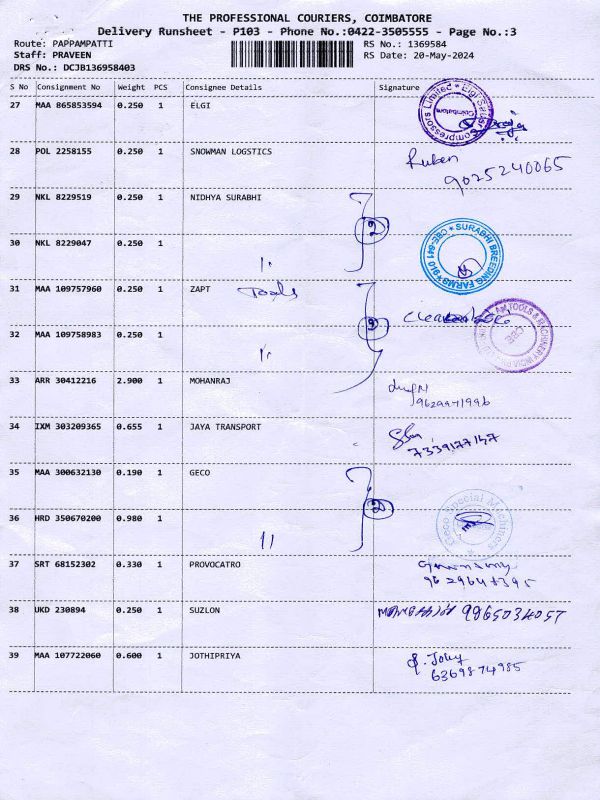 THE PROFESSIONAL COURIERS, COIMBATORE
Delivery Runsheet - P103 - Phone No.:0422-3505555 - Page No.:3
Route: PAPPAMPATTI RS No.: 1369584
Staff: PRAVEEN RS Date: 20-May-2024
DRS No.: DCJB136958403
S No Consignment No Weight PCS Consignee Details Signature
27 MAA 865853594 0.250 1 ELGI
28 POL 2258155 0.250 1 SNOWMAN LOGSTICS Ruben
9025240065
29 NKL 8229519 0.250 1 NIDHYA SURABHI
2
30 NKL 8229047 0.250 1 SURABHI BREEDING FARMS
31 MAA 109757960 0.250 1 ZAPT Tools
32 MAA 109758983 0.250 1
33 ARR 30412216 2.900 1 MOHANRAJ
34 IXM 303209365 0.655 1 JAYA TRANSPORT
7339177147
35 MAA 300632130 0.190 1 GECO
2
36 HRD 350670200 0.980 1 Geco Special Machines
37 SRT 68152302 0.330 1 PROVOCATRO
38 UKD 230894 0.250 1 SUZLON
39 MAA 107722060 0.600 1 JOTHIPRIYA
6369874985